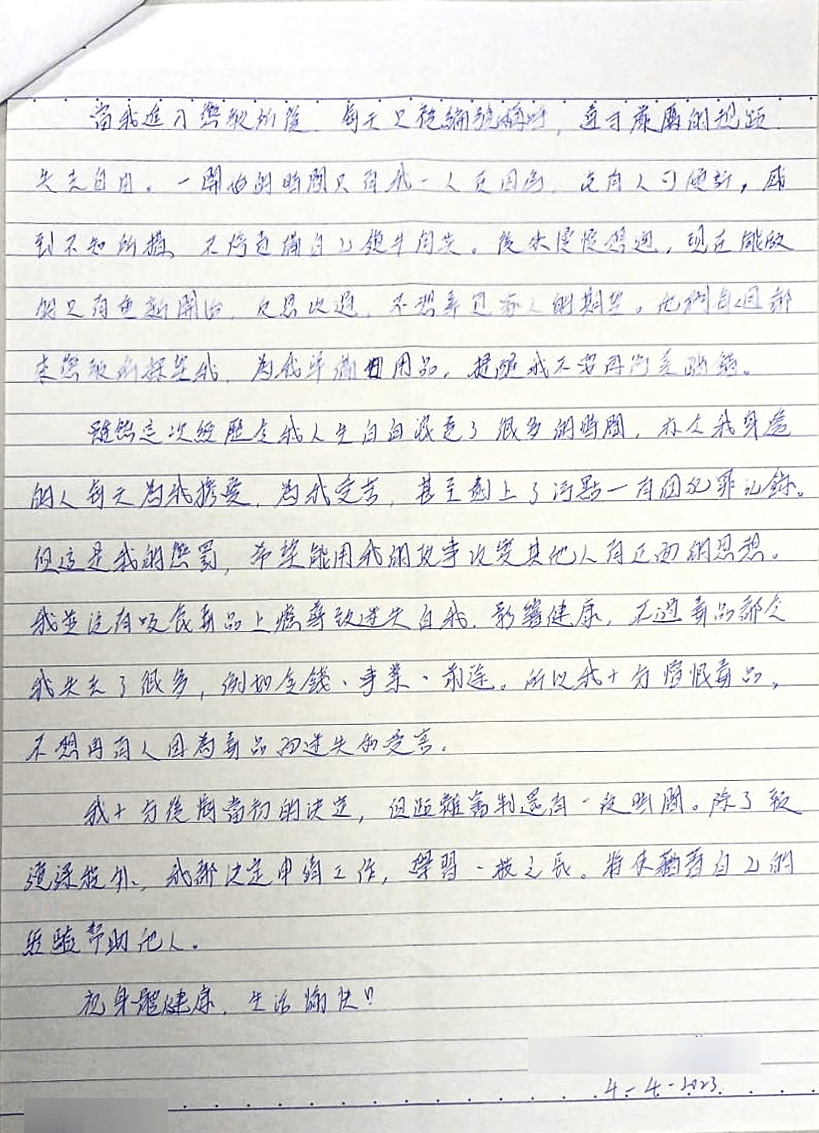 當我進入懲教所後,每天只被編號稱呼,遵守嚴厲的規矩,
失去自由。一開始的時間只有我一人在囚房,沒有人可傾訴,感
到不知所措,不停責備自己鑄牛角尖。後來慢慢想通,現在能做
的只有重新開始,反思改過,不想辜負家人的期望。他們每週都
來懲教所探望我,為我準備日用品,提醒我不要再行差踏錯。
雖然這次經歷令我人生白白浪費了很多的時間,亦令我身邊
的人每天為我擔憂,為我受苦,甚至劃上了污點一有個犯罪記錄。
但這是我的懲罰,希望能用我的故事改變其他人有正面的思想。
我並沒有吸食毒品上癮導致迷失自我,影響健康,不過毒品都令
我失去了很多,例如金錢、事業、前途。所以我十分憎恨毒品,
不想再有人因為毒品而迷失和受害。
我十分後悔當初的決定,但距離審判還有一段時間。除了報
讀課程外,我都決定申請工作,學習一技之長。將來藉著自己的
經驗幫助他人。
祝身體健康,生活愉快!!
4-4-2023